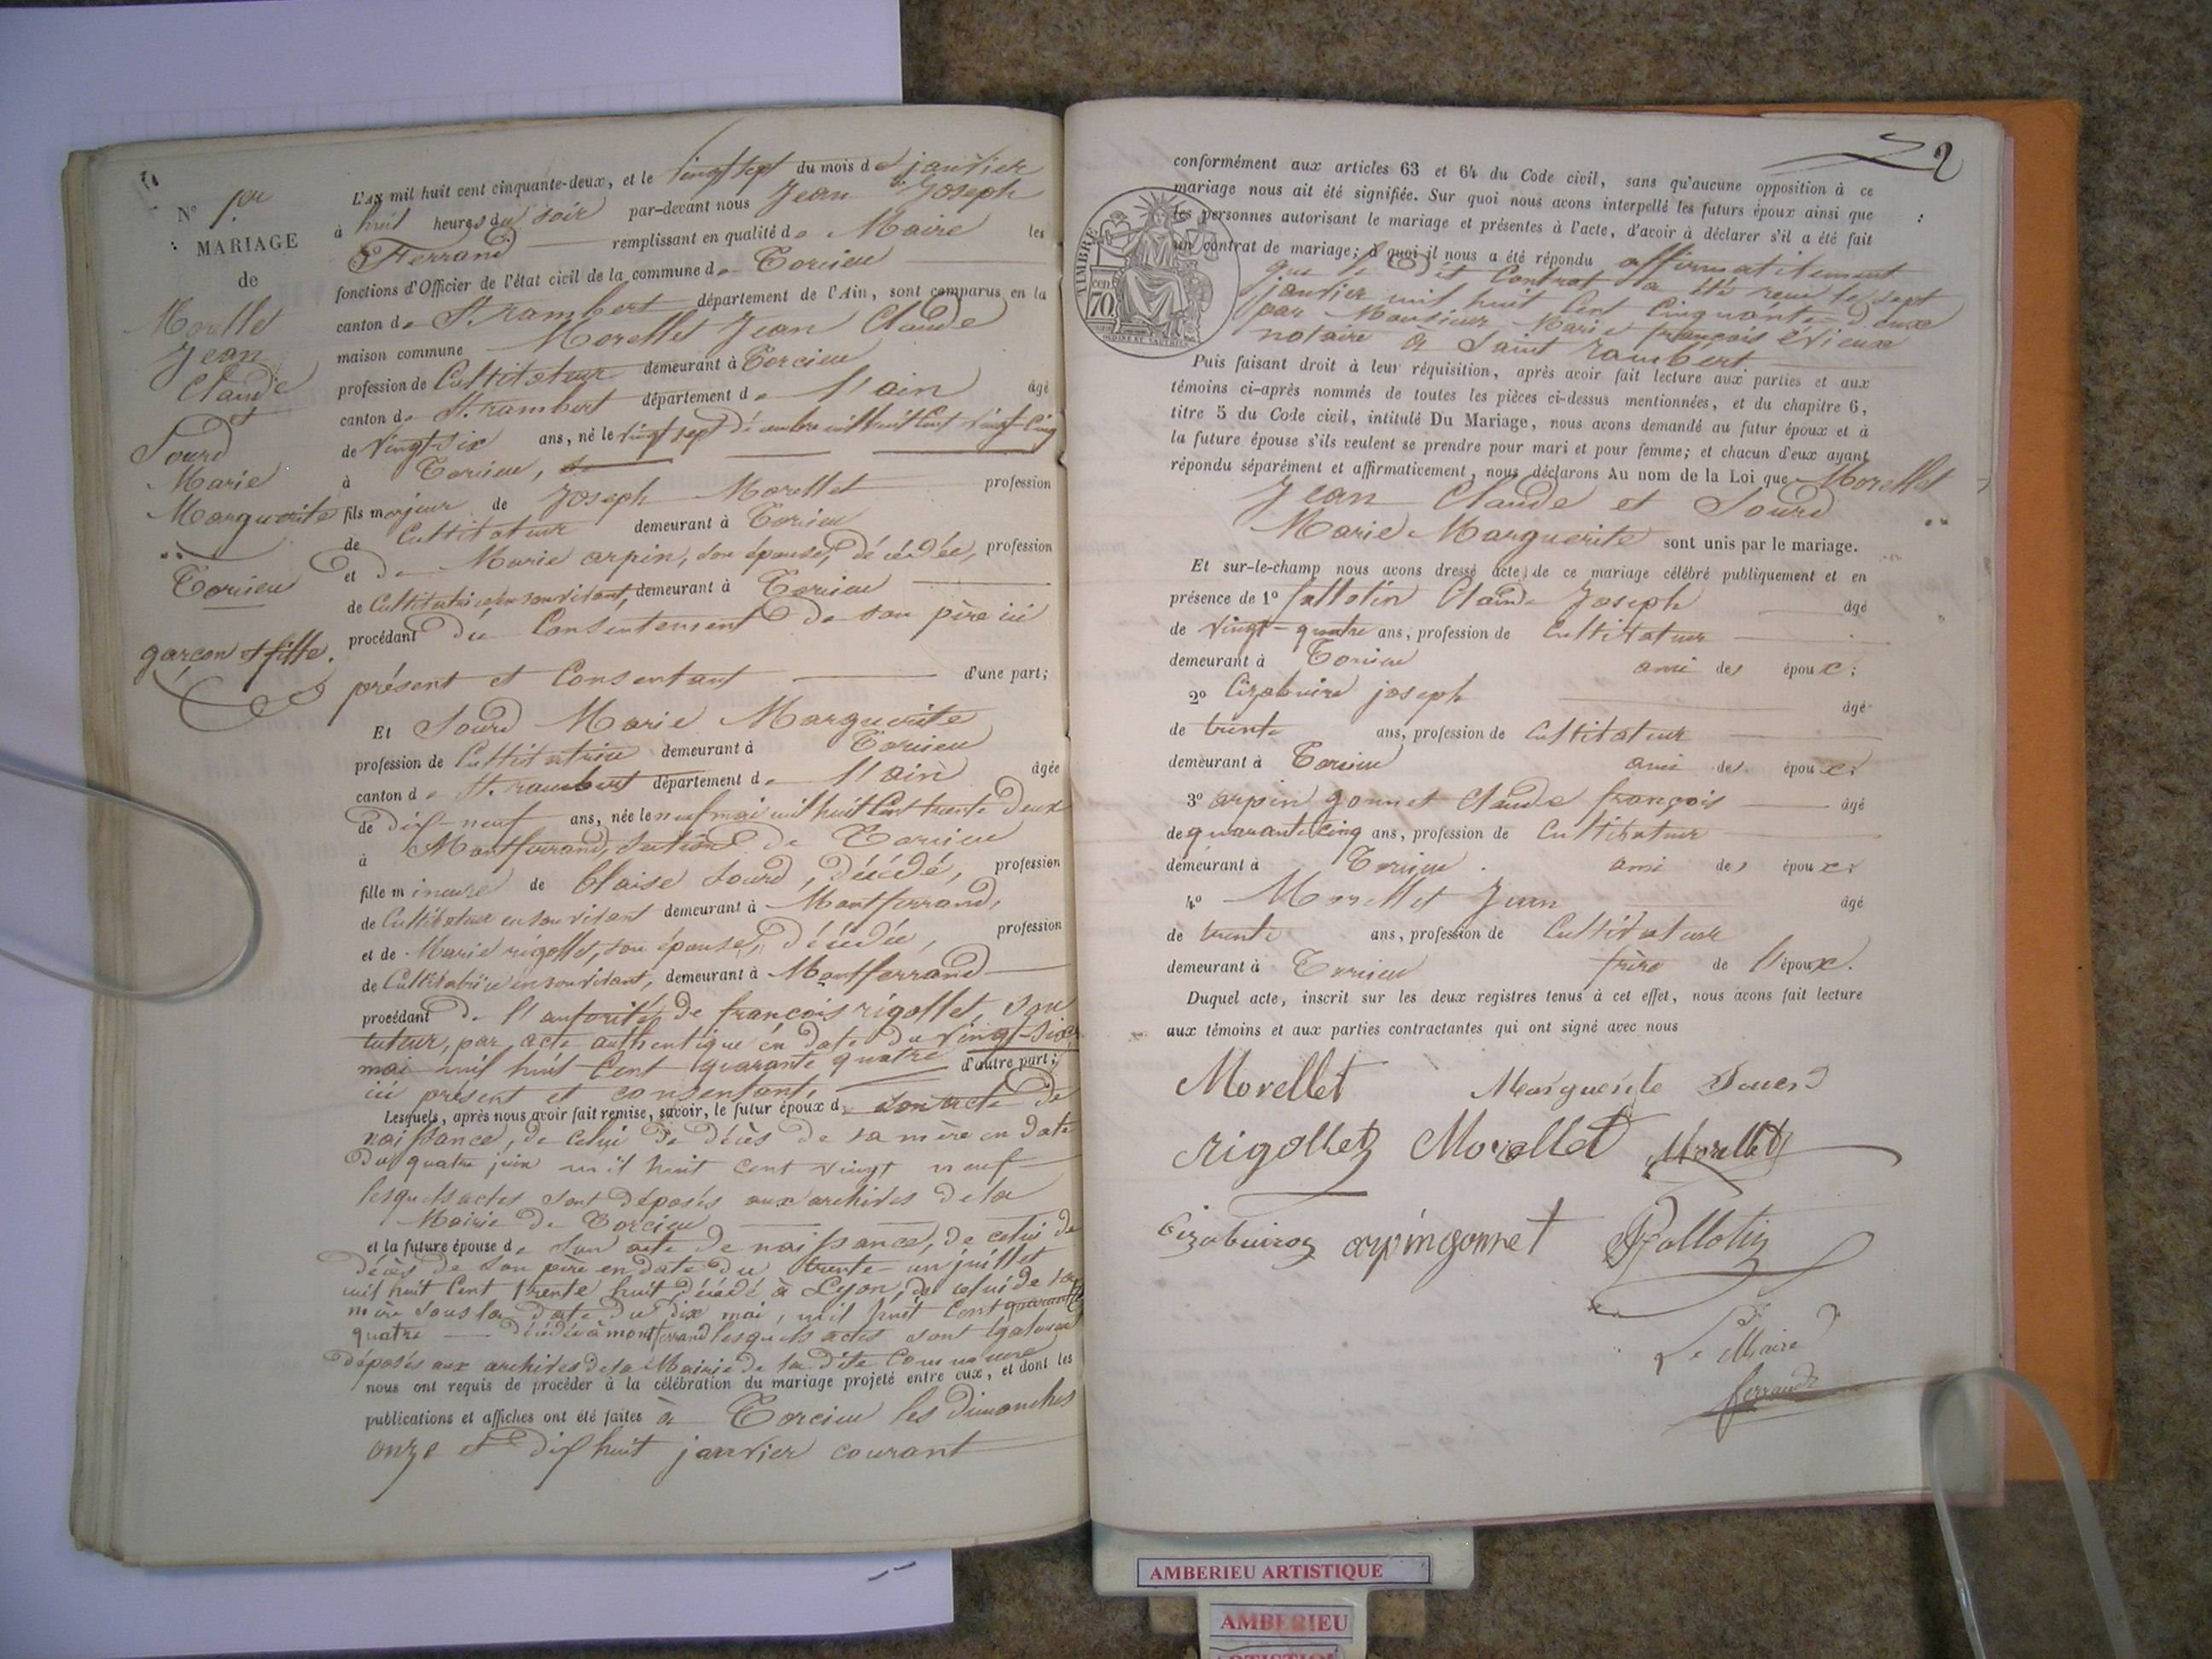 N° 1er
MARIAGE
de
Morellet
Jean
Claude
et
Sourd
Marie
Marguerite
Torcieu
garçon et fille.
L'AN mil huit cent cinquante-deux, et le vingt sept du mois de janvier
à huit heures du soir par-devant nous Jean Joseph
Ferrand remplissant en qualité de Maire les
fonctions d'Officier de l'état civil de la commune de Torcieu
canton de St. rambert département de l'Ain, sont comparus en la
maison commune Morellet Jean Claude
profession de Cultivateur demeurant à Torcieu
canton de St. rambert département de l'ain âgé
de vingt-six ans, né le vingt sept décembre mil huit Cent vingt-Cinq
à Torcieu,
fils majeur de Joseph Morellet profession
de Cultivateur demeurant à Torcieu
et de Marie arpin, son épouse, décédée, profession
de Cultivatrice en son vivant, demeurant à Torcieu
procédant du Consentement de son père ici
présent et Consentant d'une part;
Et Sourd Marie Marguerite
profession de Cultivatrice demeurant à Torcieu
canton de St. rambert département de l'ain âgée
de dix-neuf ans, née le neuf mai mil huit Cent trente deux
à Montferrand, section de Torcieu
fille mineure de blaise Sourd, décédé, profession
de Cultivateur en son vivant demeurant à Montferrand,
et de Marie rigollet, son épouse, décédée, profession
de Cultivatrice en son vivant, demeurant à Montferrand
procédant de l'autorité de françois rigollet, son
tuteur, par acte authentique en date du vingt-six
mai mil huit Cent quarante quatre d'autre part;
ici présent et consentant,
Lesquels, après nous avoir fait remise, savoir, le futur époux de son acte de
naissance, de celui de décès de sa mère en date
du quatre juin mil huit cent vingt neuf
lesquels actes sont déposés aux archives de la
Mairie de Torcieu
et la future épouse de son acte de naissance, de celui de
décès de son père en date du trente-un juillet
mil huit Cent trente huit, décédé à Lyon, de celui de sa
mère sous la date du dix mai, mil huit Cent quarante
quatre décédée à montferrand lesquels actes sont également
déposés aux archives de la Mairie de la dite Commune
nous ont requis de procéder à la célébration du mariage projeté entre eux, et dont les
publications et affiches ont été faites à Torcieu les dimanches
onze et dix huit janvier courant
2
conformément aux articles 63 et 64 du Code civil, sans qu'aucune opposition à ce
mariage nous ait été signifiée. Sur quoi nous avons interpellé les futurs époux ainsi que
les personnes autorisant le mariage et présentes à l'acte, d'avoir à déclarer s'il a été fait
un contrat de mariage; à quoi il nous a été répondu affirmativement
que le dit Contrat a été reçu le sept
janvier mil huit Cent Cinquante-deux
par Monsieur Marie françois évieux
notaire à Saint rambert
TIMBRE
70 cen
Puis faisant droit à leur réquisition, après avoir fait lecture aux parties et aux
témoins ci-après nommés de toutes les pièces ci-dessus mentionnées, et du chapitre 6,
titre 5 du Code civil, intitulé Du Mariage, nous avons demandé au futur époux et à
la future épouse s'ils veulent se prendre pour mari et pour femme; et chacun d'eux ayant
répondu séparément et affirmativement, nous déclarons Au nom de la Loi que Morellet
Jean Claude et Sourd
Marie Marguerite sont unis par le mariage.
Et sur-le-champ nous avons dressé acte de ce mariage célébré publiquement et en
présence de 1° fallotin Claude Joseph âgé
de vingt-quatre ans, profession de Cultivateur
demeurant à Torcieu ami des époux;
2° Cizabuire joseph âgé
de trente ans, profession de Cultivateur
demeurant à Torcieu ami des époux;
3° arpin gonnet Claude françois âgé
de quarante cinq ans, profession de Cultivateur
demeurant à Torcieu ami des époux;
4° Morellet Jean âgé
de trente ans, profession de Cultivateur
demeurant à Torcieu frère de l'époux.
Duquel acte, inscrit sur les deux registres tenus à cet effet, nous avons fait lecture
aux témoins et aux parties contractantes qui ont signé avec nous
Morellet Marguerite Sourd
rigollet Morellet Morellet
Cizabuiroz arpingonnet fallotin
Le Maire
ferrand
AMBERIEU ARTISTIQUE
AMBERIEU
ARTISTIQUE